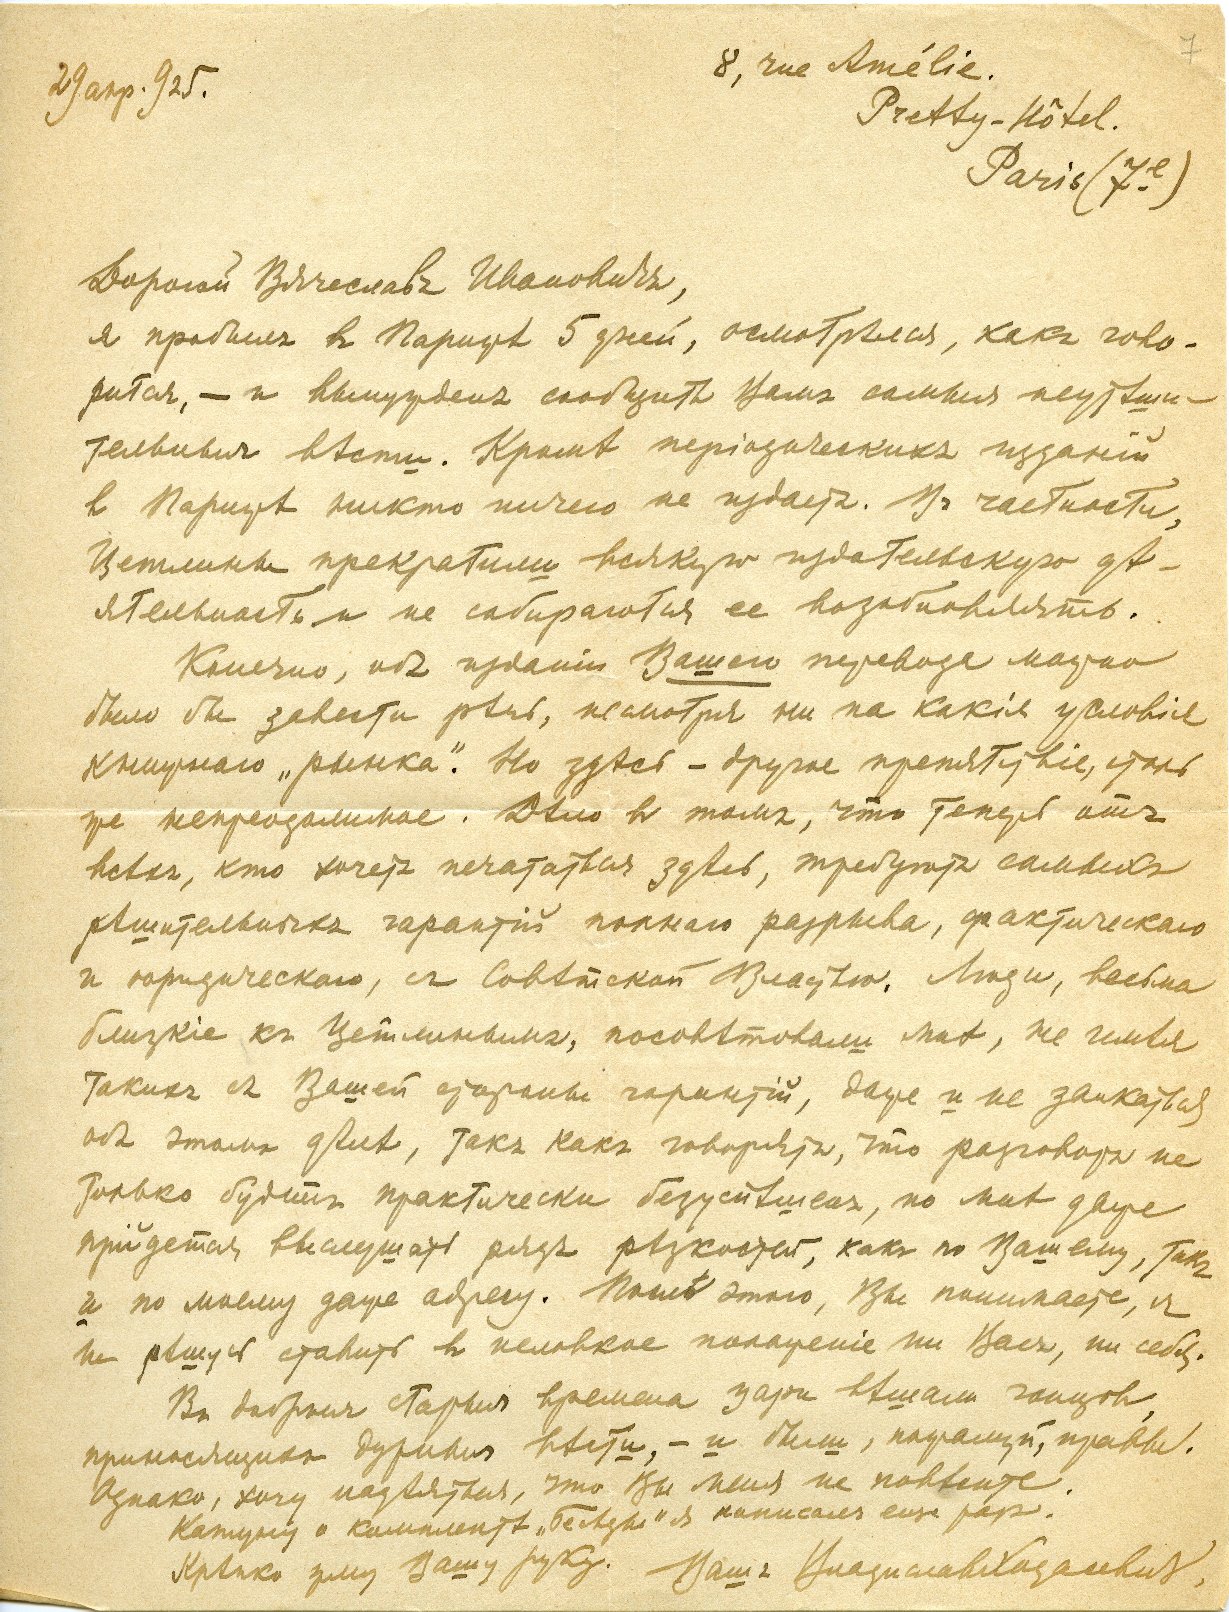 7
29 апр. 925.
8, rue Amélie.
Pretty-Hôtel.
Paris (7e)
Дорогой Вячеславъ Ивановичъ,
я пробылъ въ Парижѣ 5 дней, осмотрѣлся, какъ гово-
рится, — и вынужденъ сообщить Вамъ самыя неутѣши-
тельныя вѣсти. Кромѣ періодическихъ изданій
в Парижѣ никто ничего не издаетъ. Въ частности,
Цетлины прекратили всякую издательскую дѣ-
ятельность и не собираются ее возобновлять.
Конечно, объ изданіи Вашего перевода можно
было бы завести рѣчь, несмотря ни на какія условія
книжнаго „рынка“. Но здѣсь – другое препятствіе, столь
же непреодолимое. Дѣло в томъ, что теперь отъ
всѣхъ, кто хочетъ печататься здѣсь, требуютъ самыхъ
рѣшительныхъ гарантій полнаго разрыва, фактическаго
и юридическаго, съ Совѣтской Властью. Люди, весьма
близкіе къ Цетлинымъ, посовѣтовали мнѣ, не имѣя
такихъ съ Вашей стороны гарантій, даже и не заикаться
объ этомъ дѣлѣ, такъ какъ говорятъ, что разговоръ не
только будетъ практически безуспѣшенъ, но мнѣ даже
прійдется выслушать рядъ рѣзкостей, какъ по Вашему, такъ
и по моему даже адресу. Послѣ этого, Вы понимаете, я
не рѣшусь ставить в неловкое положеніе ни Васъ, ни себя.
Въ добрыя старыя времена цари вѣшали гонцовъ,
приносящихъ дурныя вѣсти, – и были, пожалуй, правы.
Однако, хочу надѣяться, что Вы меня не повѣсите.
Каплуну о комплектѣ „Бесѣды“ я написалъ еще разъ.
Крѣпко жму Вашу руку. Вашъ Владиславъ Ходасевичъ.